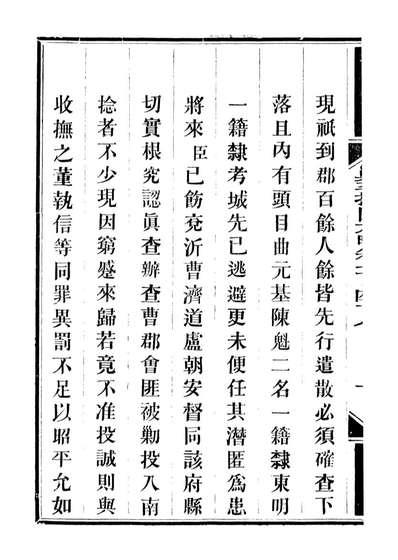 現祇到郡百餘人餘皆先行遣散必須確查下
落且內有頭目曲元基陳魁二名一籍隸東明
一籍隸考城先已逃避更未便任其潛匿為患
將來臣已飭兗沂曹濟道盧朝安督同該府縣
切實根究認眞查辦查曹郡會匪被勦投入南
捻者不少現因窮蹙來歸若竟不准投誠則與
收撫之董執信等同罪異罰不足以昭平允如